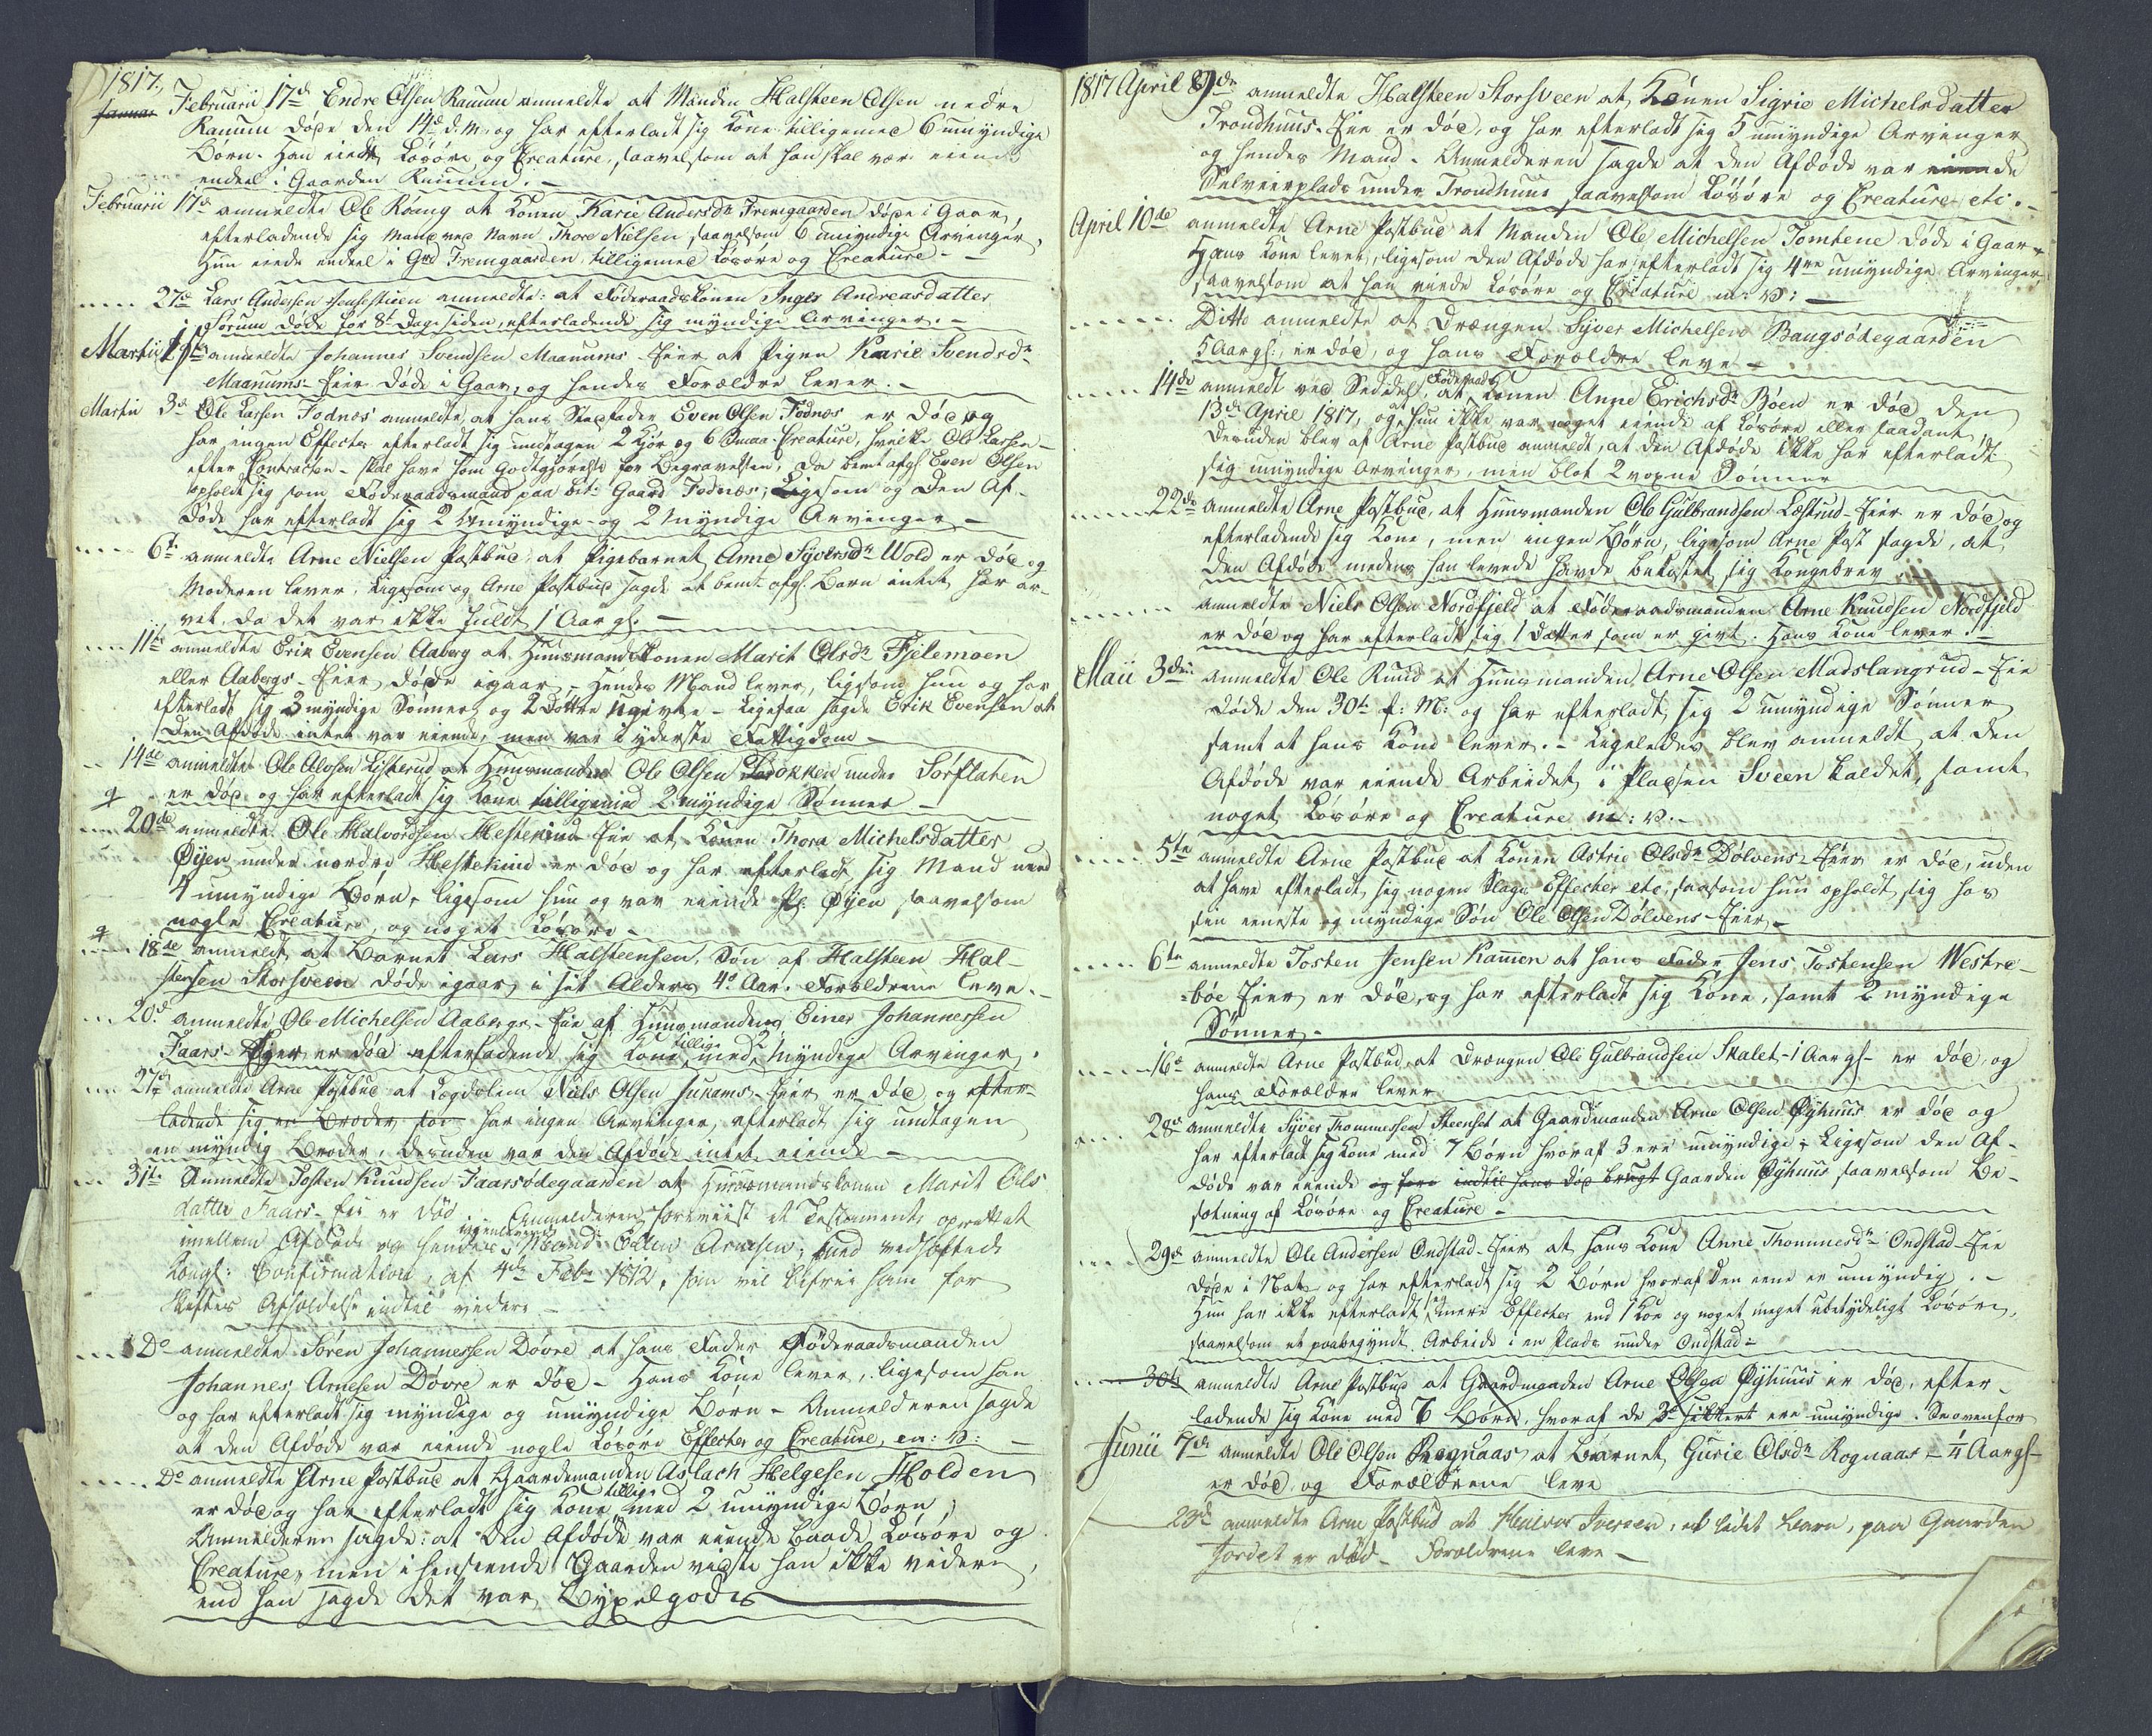 1817.
Januar Februarii 17d Endre Olsen Ranum anmeldte at Manden Halsteen Olsen nedre
Ranum døde den 14d d. M. og har efterladt sig Kone tilligemed 6 umyndige
Børn. Han eiede Løsøre og Creature, saavelsom at han skal være eiende
endeel i Gaarden Ranum. -
Februarii 17d anmeldte Ole Røang at Konen Karie Andersdr Fremgaarden døde i Gaar,
efterladende sig Mand ved Navn Thore Nielsen saavelsom 6 umyndige Arvinger,
Hun eiede endeel i Grd Fremgaarden tilligemed Løsøre og Creature -
27d Lars Andersen anmeldte: at Føderaadskonen Inger Andreasdatter
Sorum døde for 8t Dage siden, efterladende sig myndige Arvinger. -
Martii 1ste anmeldte Johannes Svendsen Maanums-Eier at Pigen Karie Svendsdr
Maanums-Eier døde i Gaar, og hendes Forældre lever. -
Martii 3d Ole Larsen Fodnæs anmeldte, at hans Stedfader Even Olsen Fodnæs er død og
har ingen Effecter efterladt sig undtagen 2 Kjør og 6 Smaa-Creature, hvilke Ole Larsen
efter Contracten - skal have som Godtgjørelse for Begravelsen, da bemt afg. Even Olsen
opholdt sig som Føderaadsmand paa bete Gaard Fodnæs; Ligesom og den Af-
døde har efterladt sig 2 Umyndige og 2 Myndige Arvinger -
6te anmeldte Arne Nielsen Postbud, at Pigebarnet Anne Syversdr Wold er død og
Moderen lever, Ligesom og Arne Postbud sagde at bemt afg. Barn intet har ar-
vet, da det var ikke fuldt 1 Aar gl. -
11te anmeldte Erik Evensen Aaberg at Huusmandskonen Marit Olsdr Fjelemoen
eller Aabergs-Eier døde igaar, - Hendes Mand lever, ligesom hun og har
efterladt sig 3 myndige Sønner og 2 Døttre Ugivte - Ligesaa sagde Erik Evensen at
den Afdøde intet var eiende, men var i yderste Fattigdom -
14de anmeldte Ole Olsen Listerud at Huusmanden Ole Olsen Brokken under Sørflaten
er død og har efterladt sig Kone tilligemed 2 myndige Sønner -
20de anmeldte Ole Halvordsen Hestekind-Eie at Konen Thora Michelsdatter
Øyen under nordre Hestekind er død og har efterladt sig Mand med
4 umyndige Børn, ligesom hun og var eiende Pl. Øyen saavelsom
nogle Creature, og noget Løsøre -
18de anmeldt at Barnet Lars Halsteensen, Søn af Halsteen Hal-
stensen Storsveen døde igaar i sit Alders 4d Aar. Forældrene leve. -
20d anmeldte Ole Michelsen Aabergs-Eie at Huusmanden Einer Johannessen
Faars-Eier er død efterladende sig Kone tillige med 2 Myndige Arvinger.
27d anmeldte Arne Postbud at Lægdslem Niels Olsen Eier er død og efter-
ladende sig en Broder, som har ingen Arvinger, efterladt sig undtagen
en myndig Broder, desuden var den Afdøde intet eiende -
31te Anmeldte Tosten Knudsen Faarsødegaarden at Huusmandskonen Marit Ols
datter Faars-Eie er død. Anmelderen foreviist et Testament oprettet
imellem Afdøde og hendes igjenlevende Mand Edlen Arnesen, med vedhæftede
kongl: Confirmation, af 4de Febr 1812, som vil befrie ham for
Skiftes Afholdelse indtil videre -
Do anmeldte Søren Johannessen Døvre at hans Fader Føderaadsmanden
Johannes Arnesen Døvre er død - Hans Kone lever, ligesom han
og har efterladt sig myndige og umyndige Børn - Anmelderen sagde
at den Afdøde var eiende nogle Løsøre Effecter og Creature, m: v: -
Do anmeldte Arne Postbud at Gaardemanden Aslach Helgesen Holden
er død og har efterladt sig Kone tillige med 2 umyndige Børn;
Anmelderen sagde: at den Afdøde var eiende baade Løsøre og
Creature, men i henseende Gaarden vidste han ikke videre,
end han sagde det var Bygselgods
1817 April 9de anmeldte Halsteen Storsveen at Konen Sigrie Michelsdatter
Trondhuus-Eie er død, og har efterladt sig 5 umyndige Arvinger
og hendes Mand - Anmelderen sagde at den Afdøde var eiende
Selveierplads under Trondhuus saavelsom Løsøre og Creature etc. -
April 10de anmeldte Arne Postbud at Manden Ole Michelsen Tomtene døde i Gaar -
Hans Kone lever, ligesom den Afdøde har efterladt sig 4re umyndige Arvinger,
saavelsom at han eiede Løsøre og Creature m: v: -
Ditto anmeldte at Drængen Syver Michelsen Baugsødegaarden
5 Aar gl:, er død, og hans Forældre leve -
14de anmeldt ved Seddel, at Føderaads Konen Anne Erichsdr Bøen er død den
13de April 1817, og at hun ikke var noget eiende af Løsøre eller saadant,
desuden blev af Arne Postbud anmeldt, at den Afdøde ikke har efterladt
sig umyndige Arvinger, men blot 2 voxne Sønner
22de anmeldte Arne Postbud, at Huusmanden Ole Gulbrandsen Læstrud-Eier er død og
efterladende sig Kone, men ingen Børn, ligesom Arne Post sagde, at
den Afdøde medens han levede havde bekostet sig Kongebrev
anmeldte Niels Olsen Nordfjeld at Føderaadsmanden Arne Knudsen Nordfjeld
er død og har efterladt sig 1 Datter som er givt. Hans Kone lever. -
Maii 3die anmeldte Ole Ruud at Huusmanden Arne Olsen Madslangrud-Eie
døde den 30te f: M: og har efterladt sig 2 umyndige Sønner
samt at hans Kone lever. - Ligeledes blev anmeldt at den
Afdøde var eiende Arbeidet i Pladsen Sveen kaldet, samt
noget Løsøre og Creature m: v. -
5te anmeldte Arne Postbud at Konen Astrie Olsdr Dølvens-Eier er død, uden
at have efterladt sig nogen Slags Effecter etc, saasom hun opholdt sig hos
sin eeneste og myndige Søn Ole Olsen Dølvens-Eier -
6te anmeldte Tosten Jensen Kammen at hans Fader Jens Tostensen Westre-
=bøe Eier er død, og har efterladt sig Kone, samt 2 myndige
Sønner. -
16d anmeldte Arne Postbud, at Drængen Ole Gulbrandsen Skalet - 1 Aar gl - er død, og
hans Forældre lever
28d anmeldte Syver Thommesen Steenset at Gaardmanden Arne Olsen Øyhuus er død og
har efterladt sig Kone med 7 Børn hvoraf 3 ere umyndige - Ligesom den Af-
døde var eiende og har indtil hans Død brugt Gaarden Øyhuus saavelsom Be-
sætning af Løsøre og Creature -
29de anmeldte Ole Andersen Ondstad-Eier at hans Kone Anne Thommesdr Ondstad-Eie
døde i Nat og har efterladt sig 2 Børn hvoraf den eene er umyndig. -
Hun har ikke efterladt sig mere Effecter end 1 Koe og noget meget ubetydeligt Løsøre,
saavelsom et paabegyndt Arbeide i en Plads under Ondstad -
30te anmeldte Arne Postbud at Gaardmanden Arne Olsen Øyhuus er død, efter-
ladende sig Kone med 7 Børn, hvoraf de 3d sikkert ere umyndige. Se ovenfor
Junii 7de anmeldte Ole Olsen Rognaas, at Barnet Gurie Olsdr Rognaas - 1/4 Aar gl -
er død, og Forældrene leve
23de anmeldte Arne Postbud at Iversen, et lidet Barn, paa Gaarden
Jordet er død - Forældrene leve -